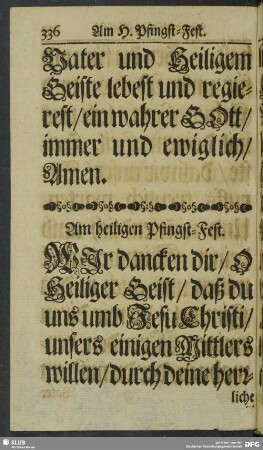 336 Am H. Pfingst-Fest.
Vater und Heiligem
Geiste lebest und regie-
rest/ein wahrer GOtt/
immer und ewiglich/
Amen.
Am heiligen Pfingst-Fest.
WIr dancken dir/O
Heiliger Geist/daß du
uns umb Jesu Christi/
unsers einigen Mittlers
willen/durch deine herr-
liche
SLUB
DFG